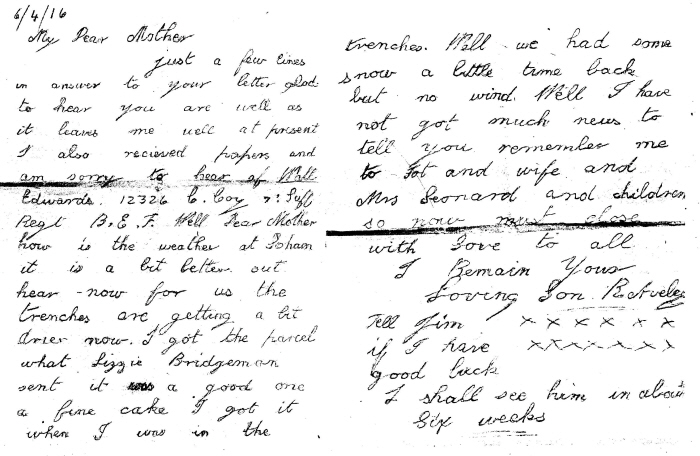 6/4/16
My Dear Mother
just a few lines
in answer to your letter glad
to hear you are well as
it leaves me well at present
I also recieved papers and
am sorry to hear of Will
Edwards. 12326 C. Coy 7: Suff
Regt B. E. F. Well Dear Mother
how is the weather at Soham
it is a bit better out
hear now for us the
trenches are getting a bit
drier now. I got the parcel
what Lizzie Bridgeman
sent it was a good one
a fine cake I got it
when I was in the
trenches. Well we had some
snow a little time back
but no wind. Well I have
not got much news to
tell you remember me
to Fot and wife and
Mrs Leonard and children
so now must close
with Love to all
I Remain Yours
Loving Son R Aveley
Tell Jim x x x x x x
if I have x x x x x x x
good luck
I shall see him in about
Six weeks